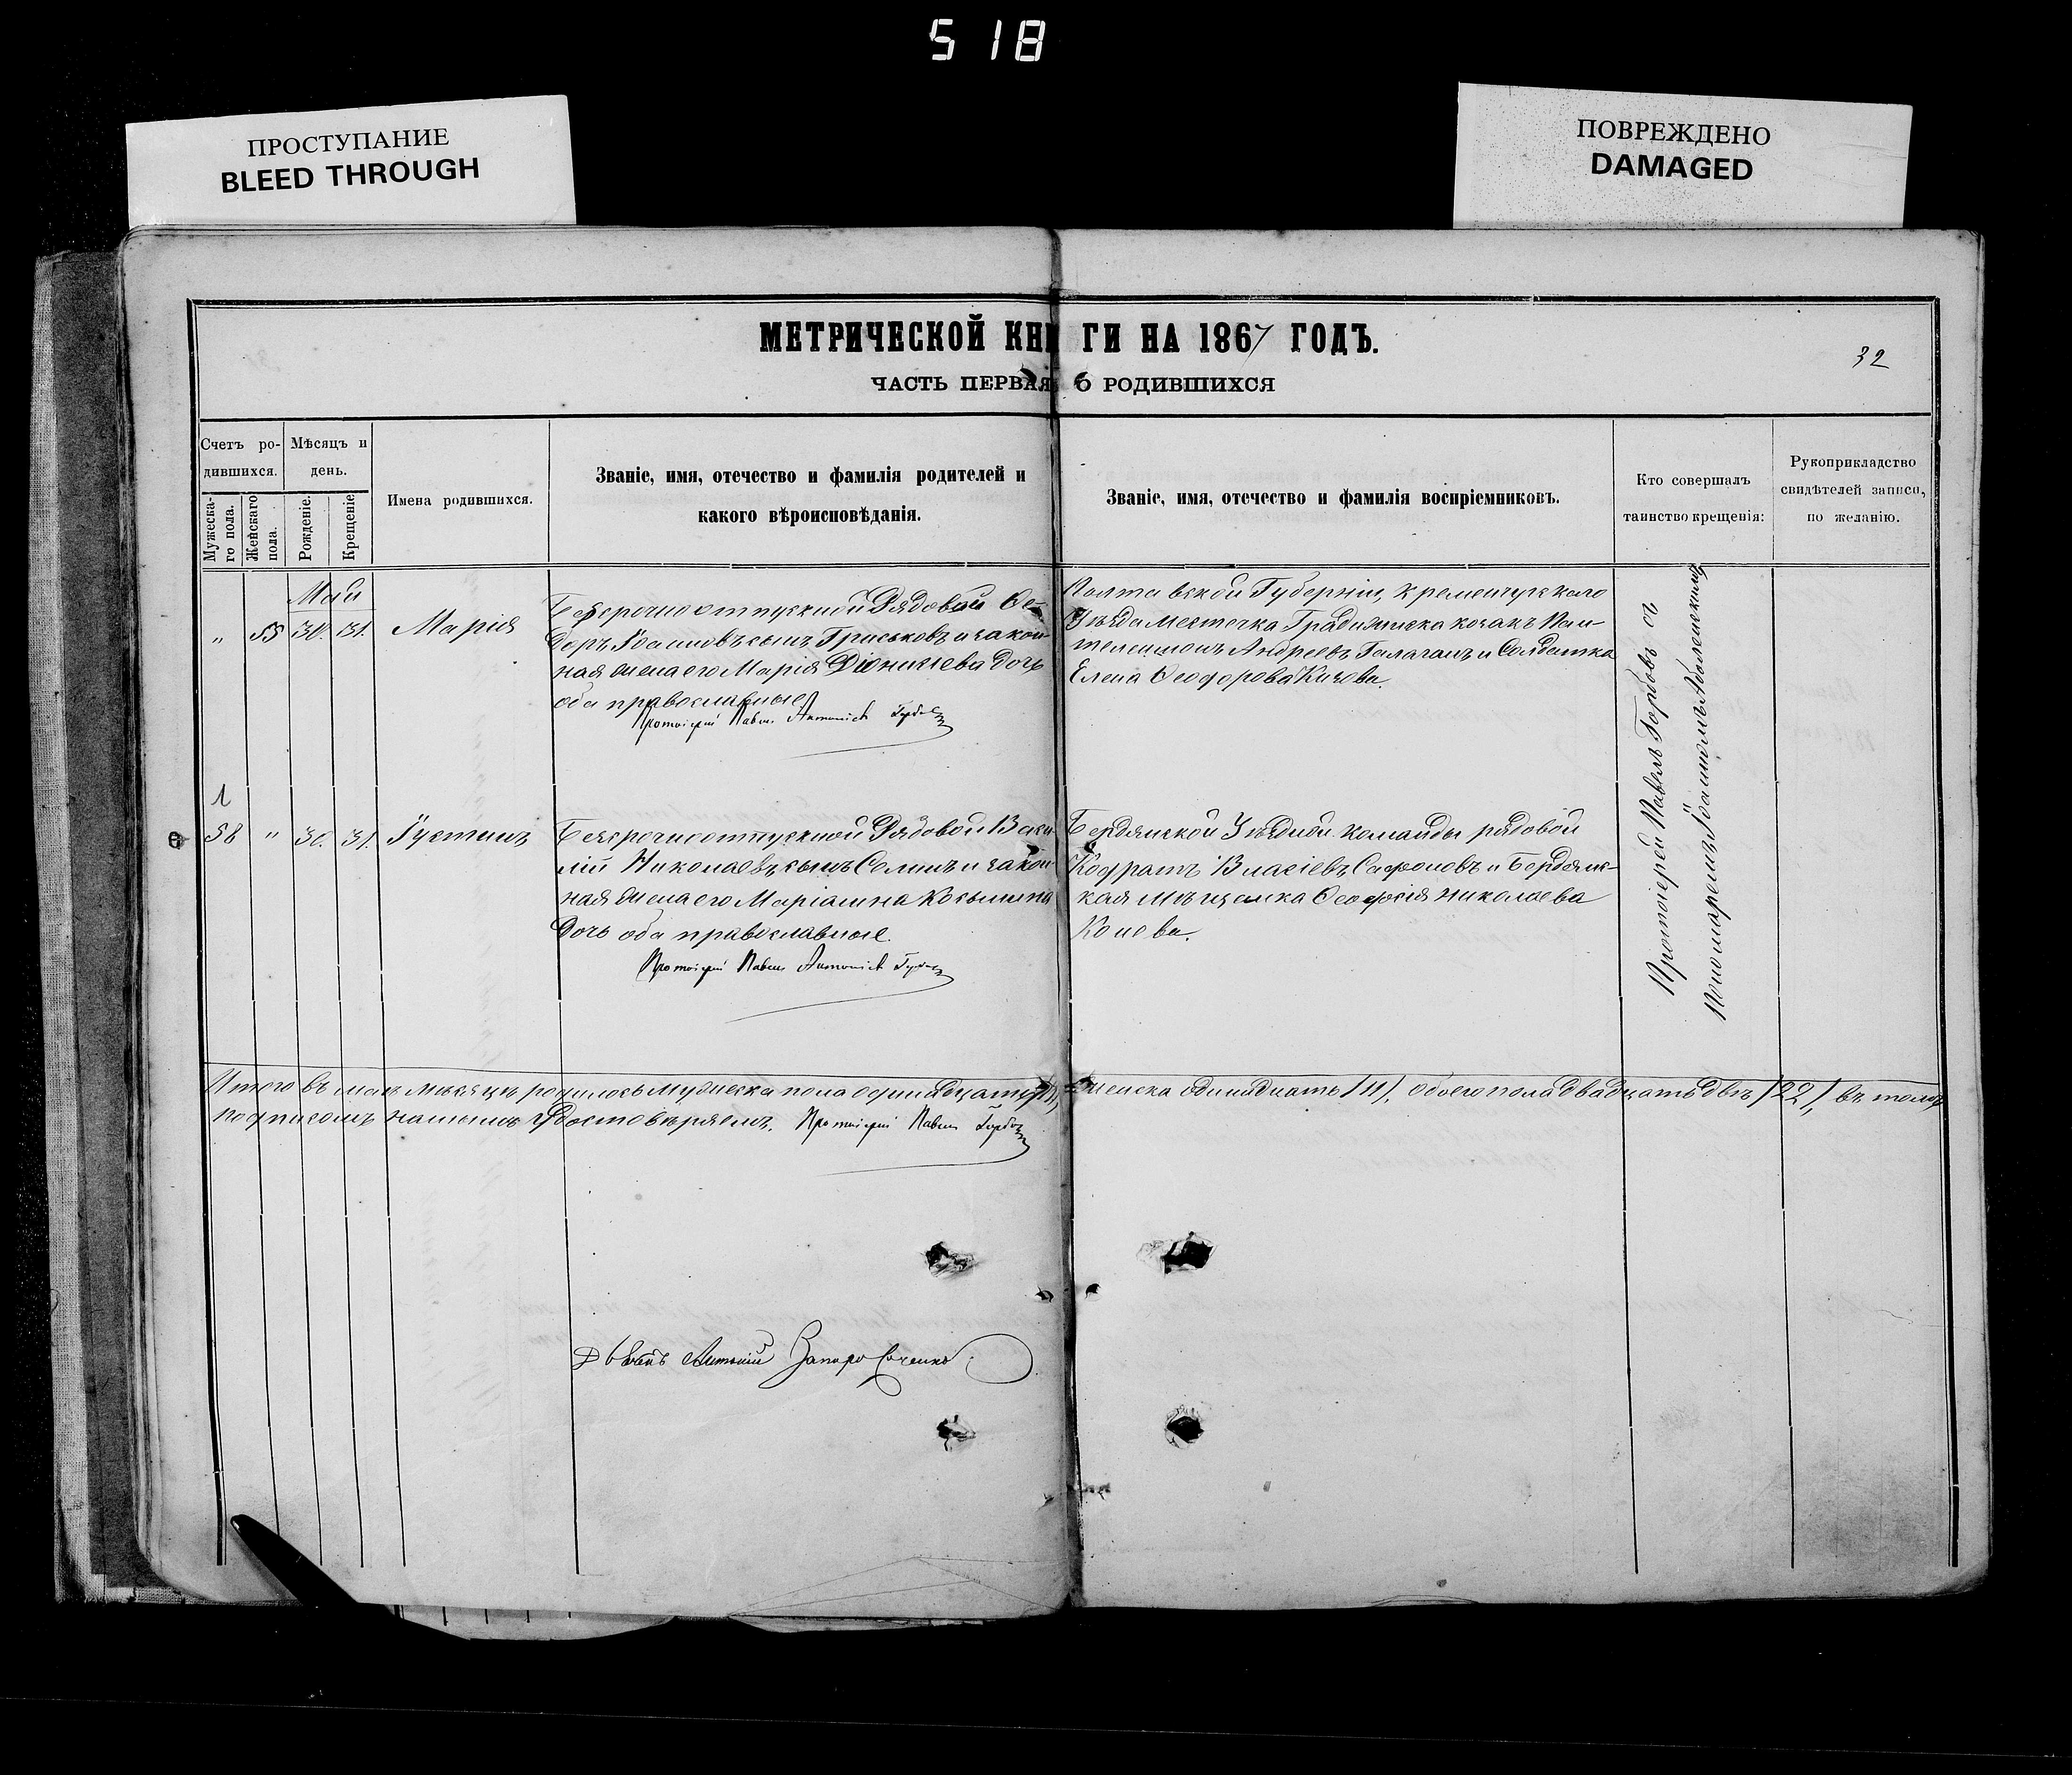 518
ПРОСТУПАНИЕ
BLEED THROUGH
ПОВРЕЖДЕНО
DAMAGED
МЕТРИЧЕСКОЙ КНИГИ НА 1867 ГОДЪ.
32
ЧАСТЬ ПЕРВАЯ, О РОДИВШИХСЯ
Счетъ ро-
дившихся.
Мужеска-
го пола.
Женскаго
пола.
Мѣсяцъ и
день.
Рожденіе.
Крещеніе.
Имена родившихся.
Званіе, имя, отечество и фамилія родителей и
какого вѣроисповѣданія.
Званіе, имя, отечество и фамилія воспріемниковъ.
Кто совершалъ
таинство крещенія:
Рукоприкладство
свидѣтелей записи,
по желанію.
Май
" 55 30. 31. Марія
Безсрочноотпускной Рядовой Ѳе-
доръ Іоанновъ сынъ Гриськовъ и закон-
ная жена его Марія Діонисіева дочь
оба православные
Протоіерей Павелъ Гербовъ
Полтавской Губерніи, Кременчугскаго
Уѣзда Местечка Градижска козакъ Пан-
телеимонъ Андреевъ Галаганъ и Солдатка
Елена Ѳеодорова
Протоіерей Павелъ Гербовъ съ
Пономаремъ Іоанномъ
1
58 " 30. 31. Іустинъ
Безсрочноотпускной Рядовой Васи-
лій Николаевъ сынъ и закон-
ная жена его Маріанна Косьмина
дочь оба православные.
Протоіерей Павелъ Гербовъ
Бердянской Уѣздной команды рядовой
Кодратъ Власіевъ Сафоновъ и Бердянс-
кая мѣщанка Ѳеодосія Николаева
Конева.
Итого въ маѣ мѣсяцѣ родилось мужеска пола одинадцать /11/, женска одинадцать /11/, обоего пола двадцать двѣ /22/, въ томъ
подписомъ нашимъ удостовѣряемъ. Протоіерей Павелъ Гербовъ
Антоній Запоро